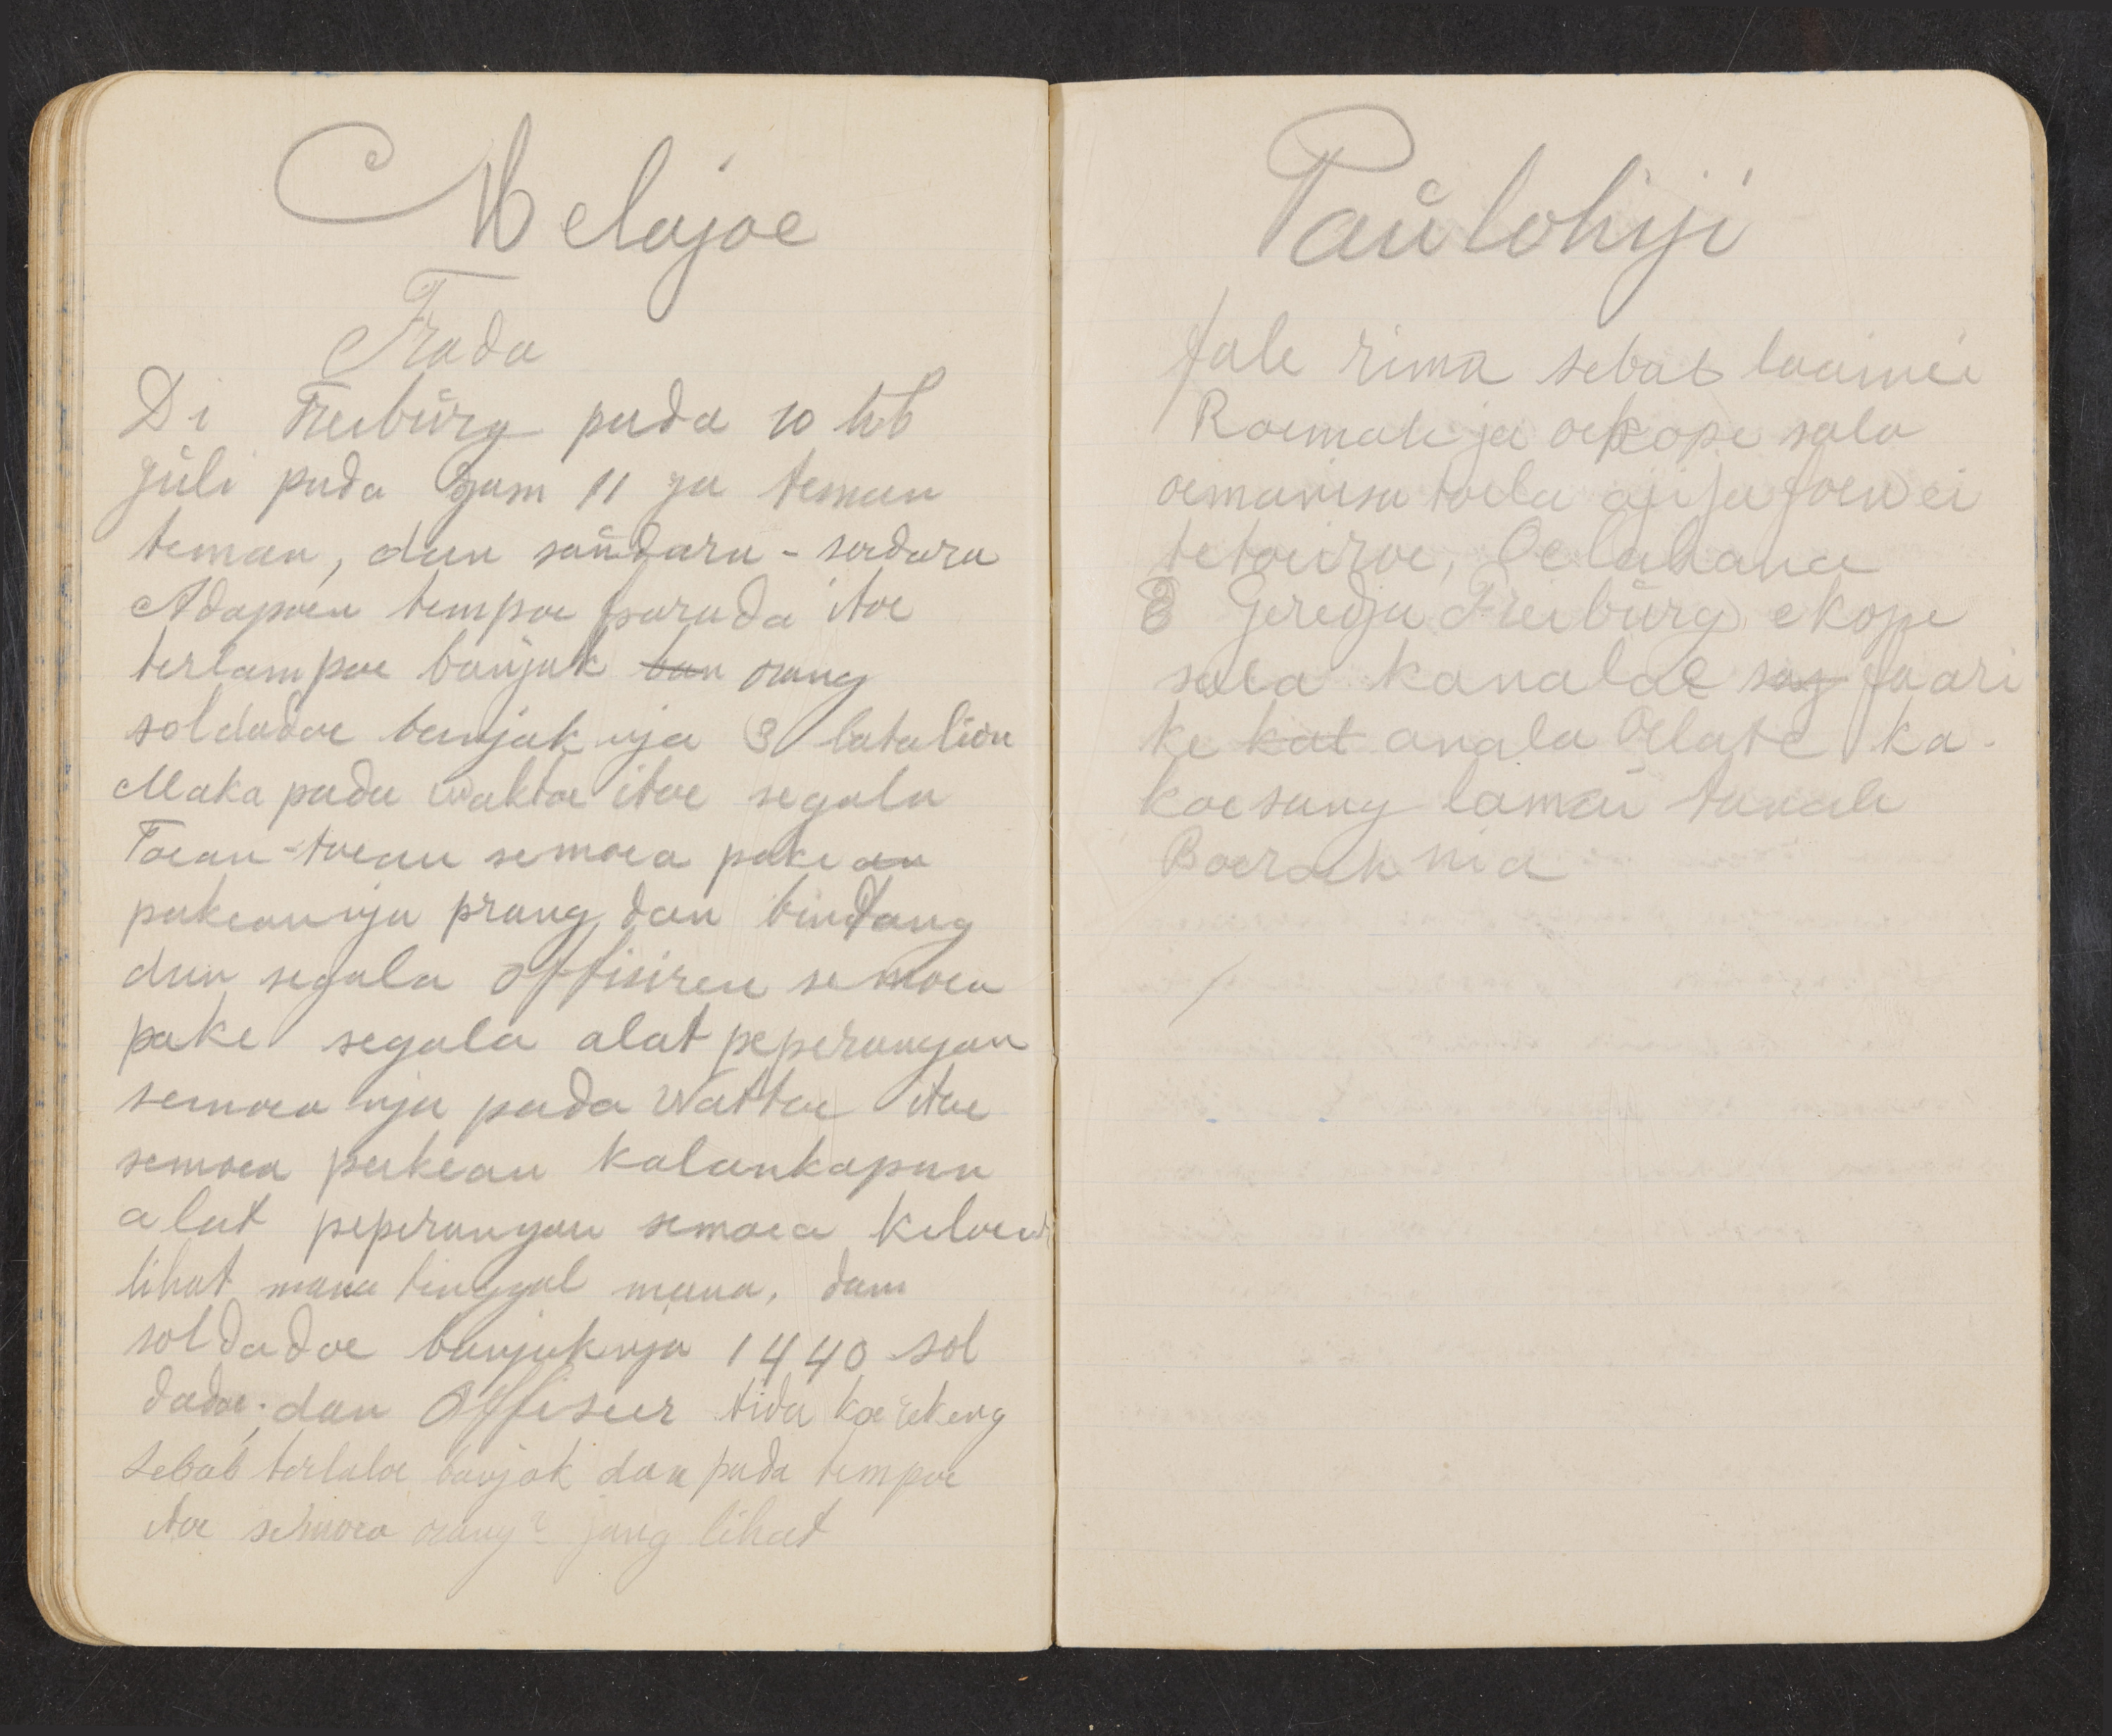 Melajoe
Frada
Di Freibürg pada 10 hb
Jüli pada Djam 11 ja teman
teman, dan saüdara - sodara
Adapoen tempoe parada itoe
terlampoe banjak ban orang
soldadoe banjak nja 3 batalion
Maka pada waktoe itoe segala
Toean - toean semoea pake an
pakean nja prang, dan bintang
dan segala offisiren semoea
pake segala alat peperangan
semoea nja pada wattoe itoe
semoea pakean kalankapan
alat peperangan semoea keloear
lihat mana tinggal mana, dam
soldadoe banjaknja 1440 sol
dadoe; dan Offisier tida
sebab terlaloe banjak dan pada tempoe
itoe semoea orang2 jang lihat
Paülohiji
fale rima sebab laamei
Roemah ja oekope sala
oemanisa toela
tetoeiroe, Oelahana
Geredja Freibürg ekope
sala kanalae saj faari
ke kat anala Oelate ka-
koesang lamai tanah
Boerak nia